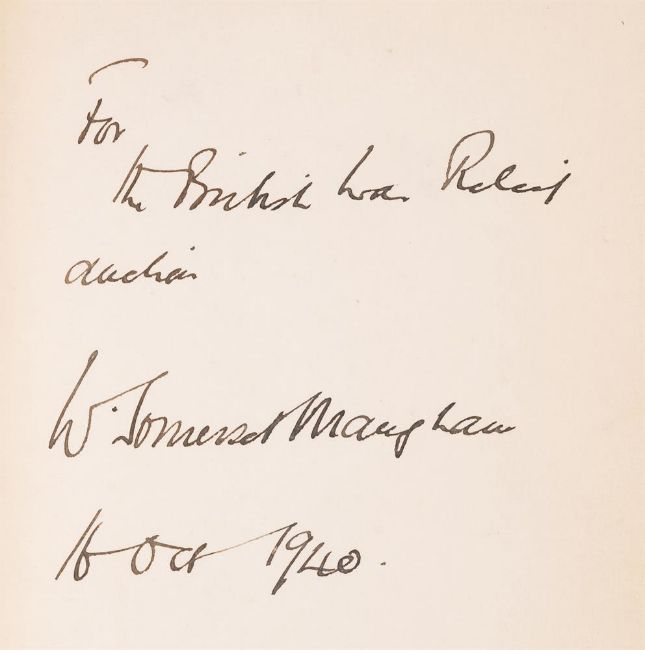 For
the British War Relief
auction
W. Somerset Maugham
16 Oct 1940.